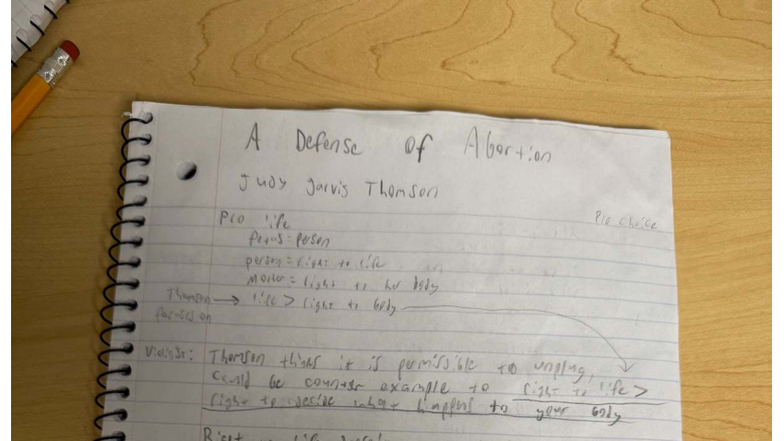 A Defense of Abortion
Judy Jarvis Thomson
Pro life
Pro choice
fetus = person
person = right to life
Mother = right to her body
Thomson → life > right to body
focuses on
Violinist: Thomson thinks it is permissible to unplug,
could be counter example to right to life >
right to decide what happens to your body